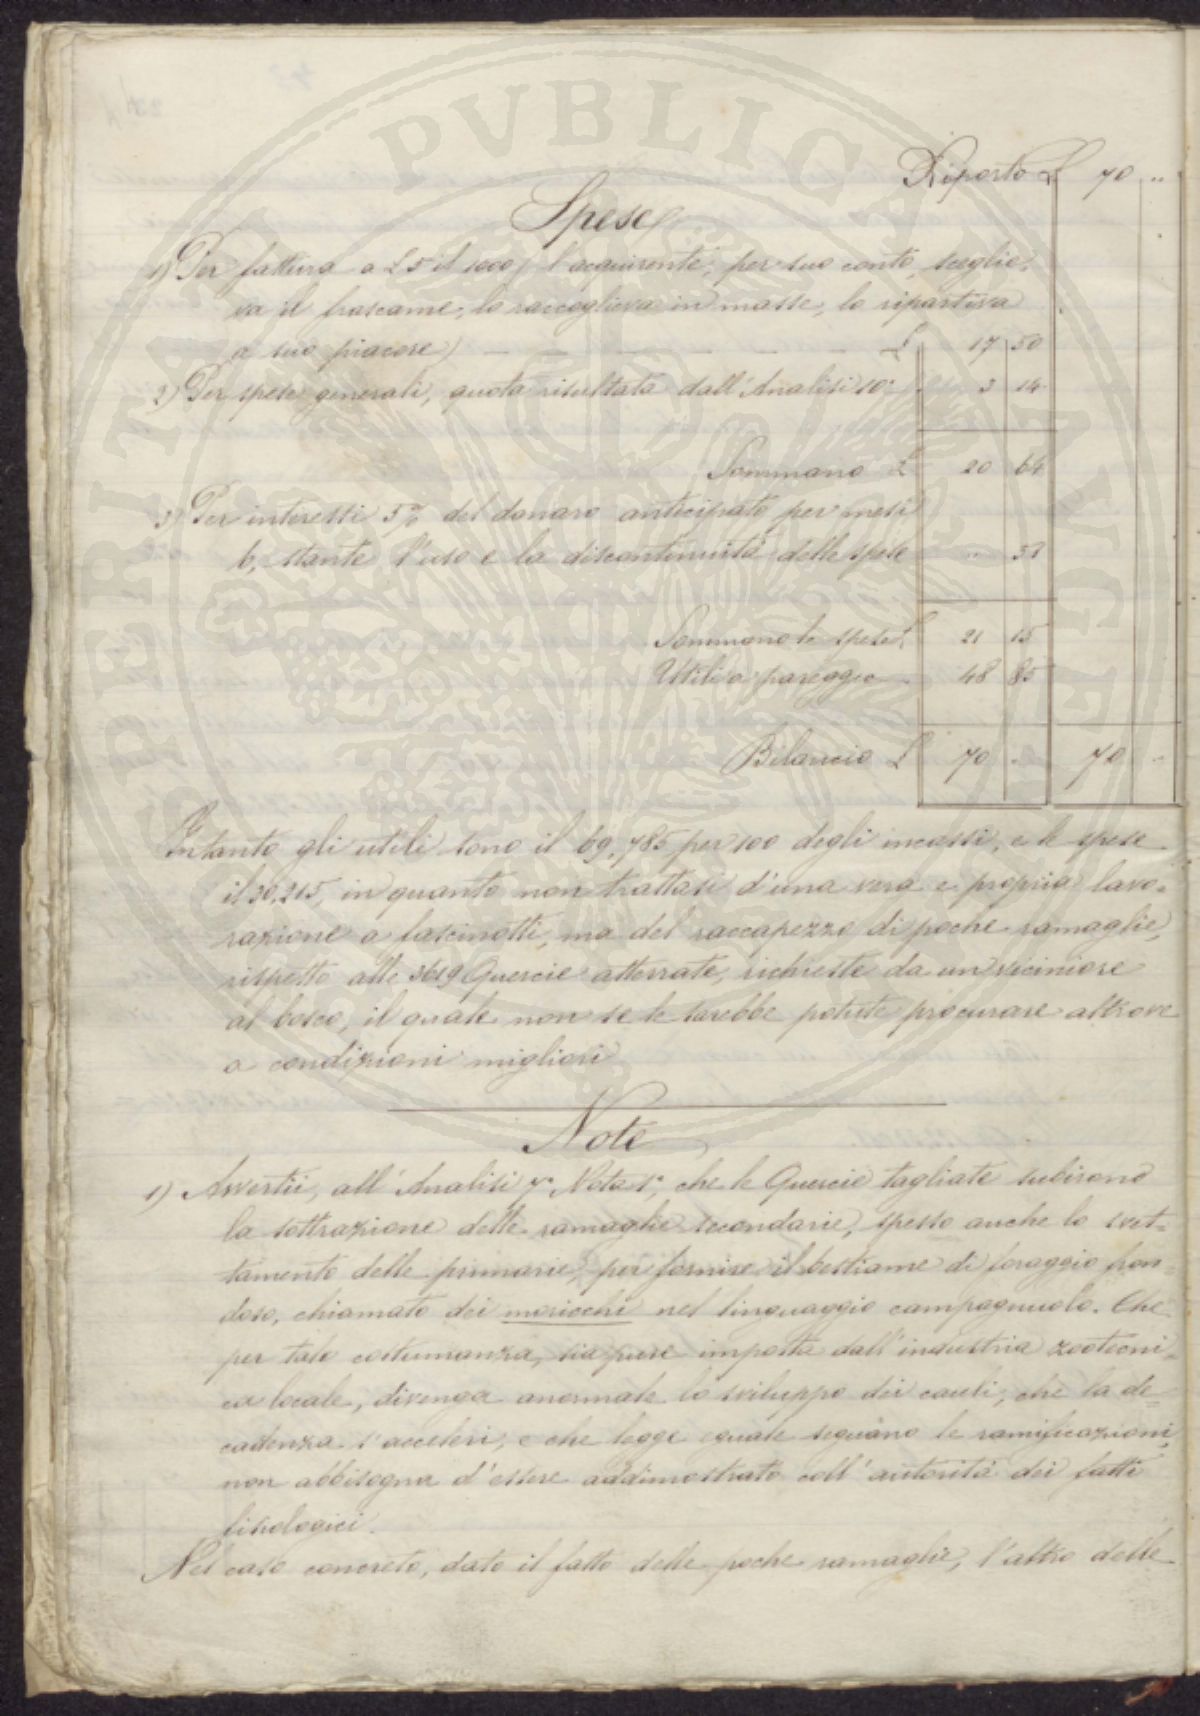 Riporto £ 70 "
Spese
1) Per fattura a £ 5 il 1000 (l'acquirente, per suo conto, sceglie-
va il frascame, lo raccoglieva in masse, lo ripartiva
a suo piacere) — — — — — £ 17 50
2) Per spese generali, quota risultata dall'Analisi 10ª „ 3 14
Sommano £ 20 64
3) Per interessi 5% del danaro anticipato per mesi
6, stante l'uso e la discontinuità delle spese " 51
Sommano le spese £ 21 15
Utili a pareggio 48 85
Bilancio £ 70 " 70 "
Intanto gli utili sono il 69,785 per 100 degli incassi, e le spese
il 30,215, in quanto non trattasi d'una vera e propria lavo-
razione a fascinotti, ma del raccapezzo di poche ramaglie,
rispetto alle 3619 Quercie atterrate, richieste da un viciniore
al bosco, il quale non se le sarebbe potute procurare altrove
a condizioni migliori
Note
1) Avvertii, all'Analisi 7ª Nota 1ª, che le Quercie tagliate subirono
la sottrazione delle ramaglie secondarie, spesso anche lo svet-
tamento delle primarie, per fornire il bestiame di foraggio fron-
doso, chiamato dei moricchi nel linguaggio campagnuolo. Che
per tale costumanza, sia pure imposta dall'industria zootecni-
ca locale, divenga anormale lo sviluppo dei cauli, che la de-
cadenza s'acceleri, e che legge eguale seguano le ramificazioni,
non abbisogna d'essere addimostrato coll'autorità dei fatti
fisiologici.
Nel caso concreto, dato il fatto delle poche ramaglie, l'altro delle